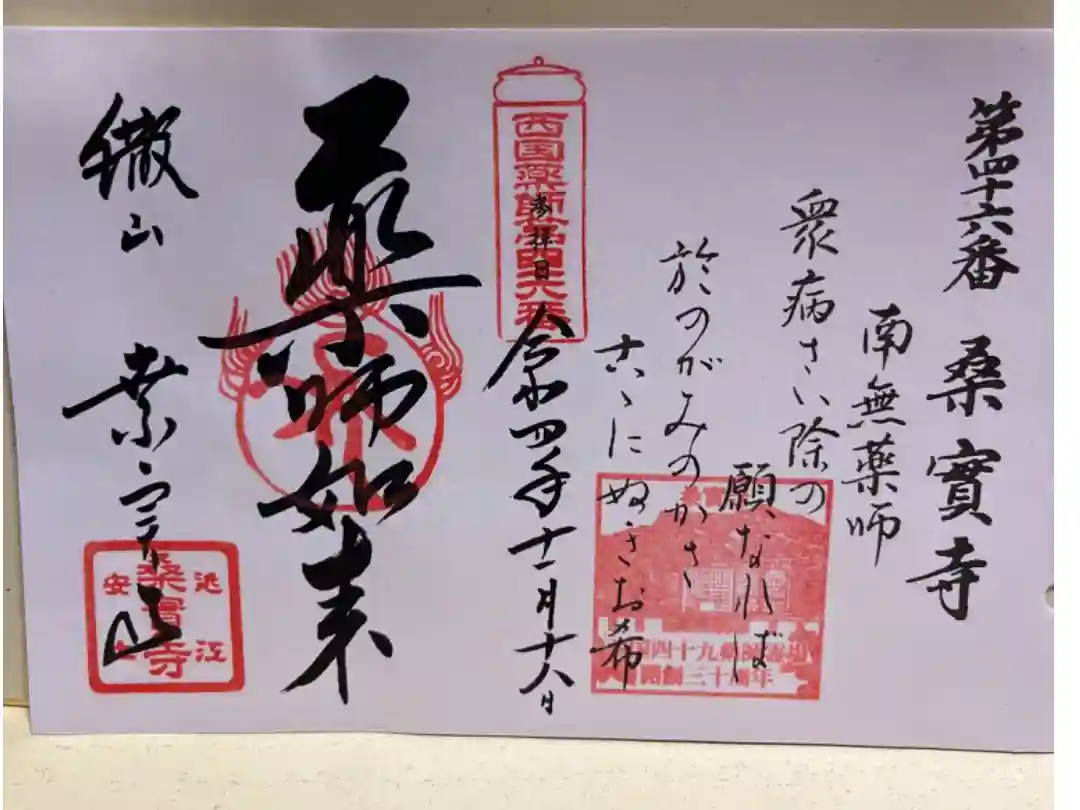 第四十六番 桑實寺
南無薬師
衆病さい除の
願なれば
於のがみのかさ
古ゝにぬきお希
西国薬師第四十六番
参拝日
令和四年十一月十六日
薬師如来
繖山
桑實寺
近江
桑實寺
安土
四十九薬師霊場
開創三十周年